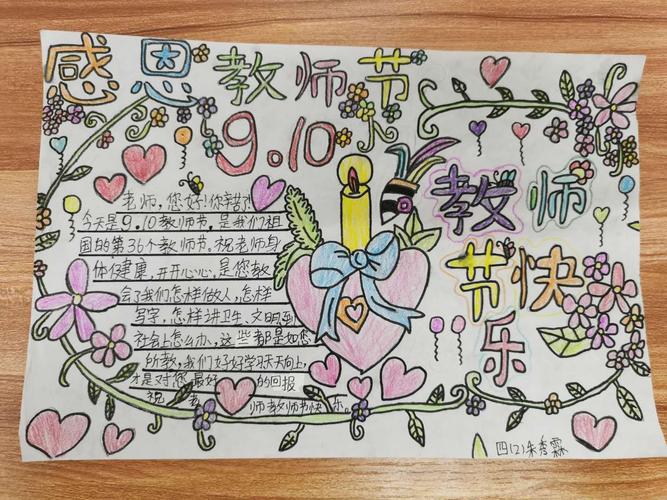 感恩教师节
9.10
老师,您好!你辛苦了!
今天是9.10教师节,是我们祖
国的第36个教师节,祝老师身
体健康,开开心心,是您教
会了我们怎样做人,怎样
写字,怎样讲卫生、文明到
社会上怎么办,这些都是如您
所教,我们好好学习天天向上,
才是对您最好的回报
祝老师教师节快乐。
教师
节快
乐
四(2)朱秀霖